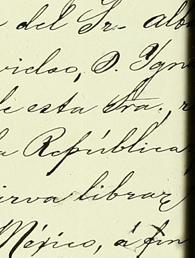 del Sr. alb
D. Ygn
de esta Sra., r
a República
irva librar
México, á fin